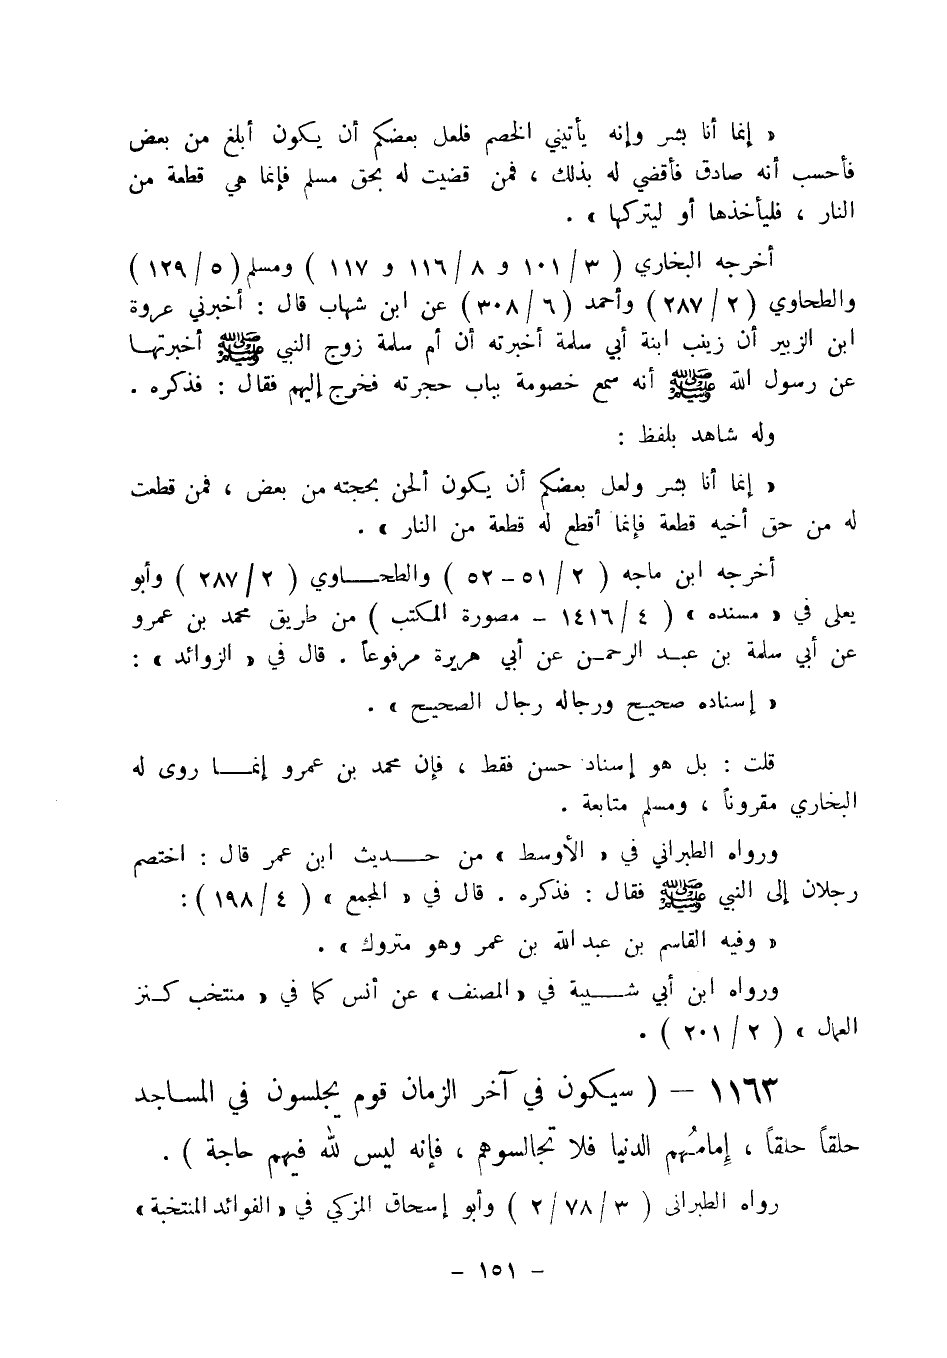 « إنما أنا بشر وإنه يأتيني الخصم فلعل بعضكم أن يكون أبلغ من بعض
فأحسب أنه صادق فأقضي له بذلك ، فمن قضيت له بحق مسلم فإنما هي قطعة من
النار ، فليأخذها أو ليتركها » .
أخرجه البخاري ( ٣ / ١٠١ و ٨ / ١١٦ و ١١٧ ) ومسلم ( ٥ / ١٢٩ )
والطحاوي ( ٢ / ٢٨٧ ) وأحمد ( ٦ / ٣٠٨ ) عن ابن شهاب قال : أخبرني عروة
ابن الزبير أن زينب ابنة أبي سلمة أخبرته أن أم سلمة زوج النبي ﷺ أخبرتها
عن رسول الله ﷺ أنه سمع خصومة بباب حجرته فخرج إليهم فقال : فذكره .
وله شاهد بلفظ :
« إنما أنا بشر ولعل بعضكم أن يكون ألحن بحجته من بعض ، فمن قطعت
له من حق أخيه قطعة فإنما أقطع له قطعة من النار » .
أخرجه ابن ماجه ( ٢ / ٥١ - ٥٢ ) والطحاوي ( ٢ / ٢٨٧ ) وأبو
يعلى في « مسنده » ( ٤ / ١٤١٦ - مصورة المكتب ) من طريق محمد بن عمرو
عن أبي سلمة بن عبد الرحمن عن أبي هريرة مرفوعاً . قال في « الزوائد » :
« إسناده صحيح ورجاله رجال الصحيح » .
قلت : بل هو إسناد حسن فقط ، فإن محمد بن عمرو إنما روى له
البخاري مقروناً ، ومسلم متابعة .
ورواه الطبراني في « الأوسط » من حديث ابن عمر قال : اختصم
رجلان إلى النبي ﷺ فقال : فذكره . قال في « المجمع » ( ٤ / ١٩٨ ) :
« وفيه القاسم بن عبد الله بن عمر وهو متروك » .
ورواه ابن أبي شيبة في « المصنف » عن أنس كما في « منتخب كنز
العمال » ( ٢ / ٢٠١ ) .
١١٦٣ - ( سيكون في آخر الزمان قوم يجلسون في المساجد
حلقاً حلقاً ، إمامُهم الدنيا فلا تجالسوهم ، فإنه ليس لله فيهم حاجة ) .
رواه الطبرانى ( ٣ / ٧٨ / ٢ ) وأبو إسحاق المزكي في « الفوائد المنتخبة »
- ١٥١ -